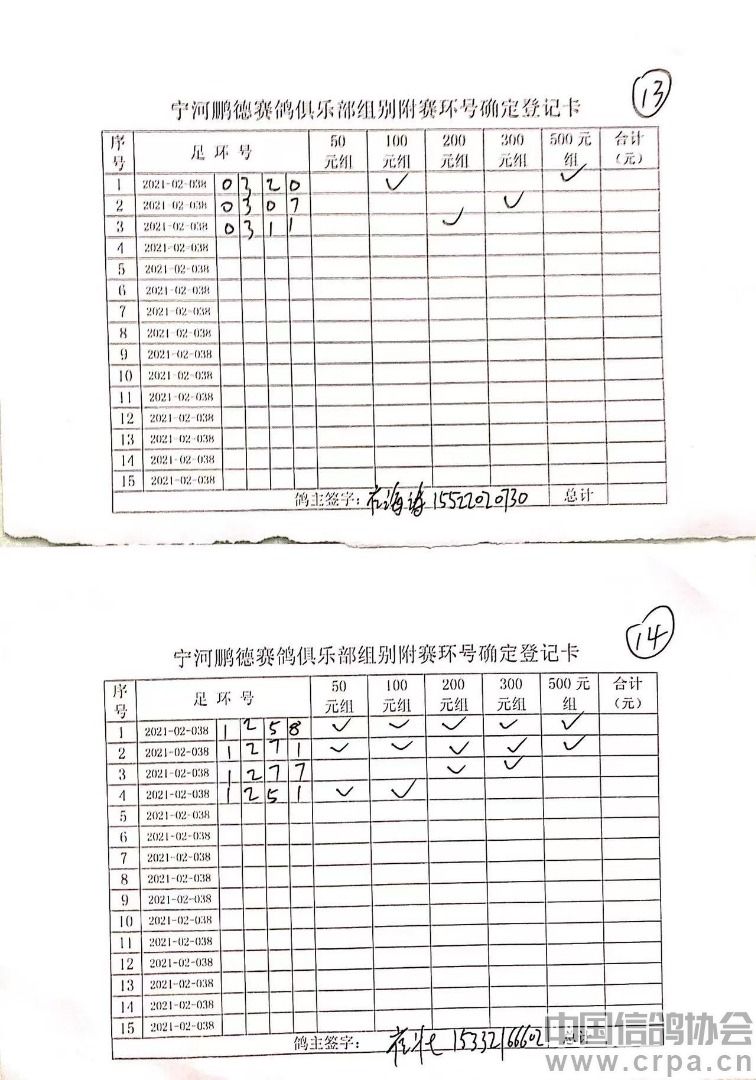 ⑬
宁河鹏德赛鸽俱乐部组别附赛环号确定登记卡
序号 足环号 50元组 100元组 200元组 300元组 500元组 合计(元)
1 2021-02-038 0320 ✓ ✓
2 2021-02-038 0307 ✓
3 2021-02-038 0311 ✓
4 2021-02-038
5 2021-02-038
6 2021-02-038
7 2021-02-038
8 2021-02-038
9 2021-02-038
10 2021-02-038
11 2021-02-038
12 2021-02-038
13 2021-02-038
14 2021-02-038
15 2021-02-038
鸽主签字: 15522020730 总计
⑭
宁河鹏德赛鸽俱乐部组别附赛环号确定登记卡
序号 足环号 50元组 100元组 200元组 300元组 500元组 合计(元)
1 2021-02-038 1258 ✓ ✓ ✓ ✓ ✓
2 2021-02-038 1271 ✓ ✓ ✓ ✓ ✓
3 2021-02-038 1277 ✓ ✓
4 2021-02-038 1251 ✓ ✓
5 2021-02-038
6 2021-02-038
7 2021-02-038
8 2021-02-038
9 2021-02-038
10 2021-02-038
11 2021-02-038
12 2021-02-038
13 2021-02-038
14 2021-02-038
15 2021-02-038
鸽主签字: 总计
中国信鸽协会
www.crpa.cn